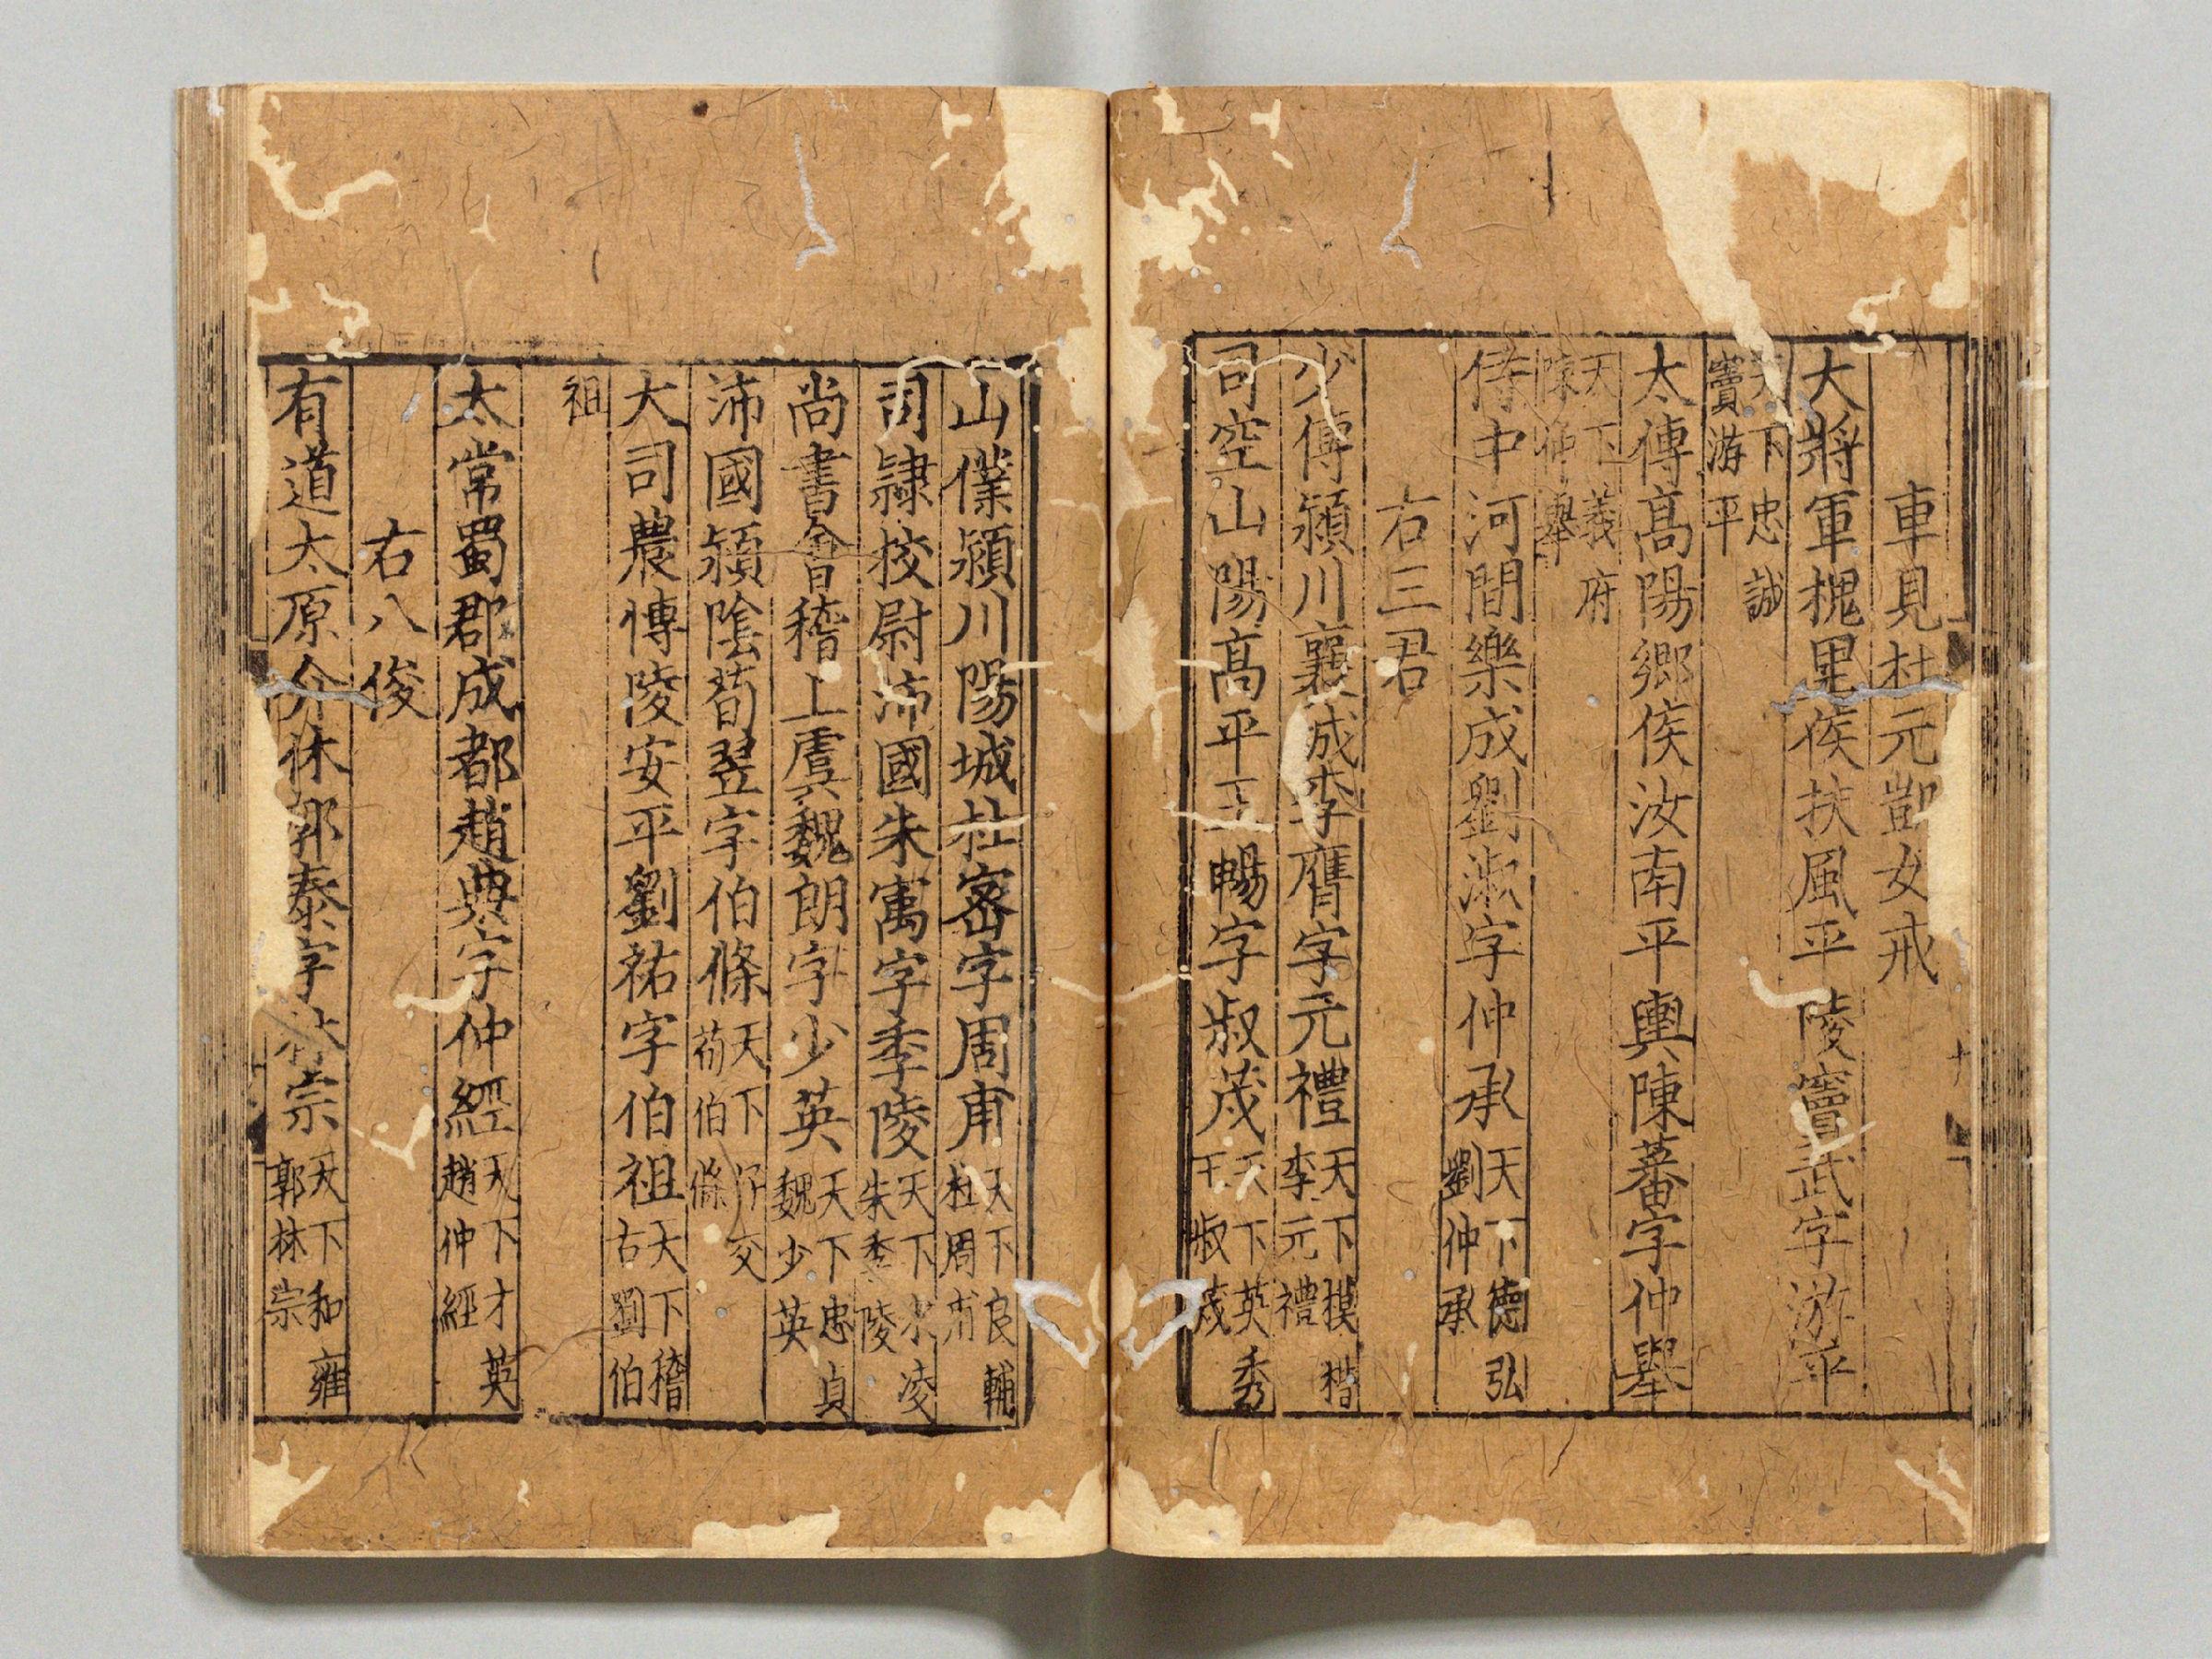 車見杜元凱女戒
大將軍槐里侯扶風平陵竇武字游平
天下忠誠
竇游平
太傅高陽鄉侯汝南平輿陳蕃字仲舉
天下義府
陳仲舉
侍中河間樂成劉淑字仲承天下德弘
劉仲承
右三君
少傅潁川襄成李膺字元禮天下模楷
李元禮
司空山陽高平王暢字叔茂天下英秀
王叔茂
山僕潁川陽城杜密字周甫天下良輔
杜周甫
司隷校尉沛國朱㝢字季陵天下氷凌
朱季陵
尚書會稽上虞魏朗字少英天下忠貞
魏少英
沛國潁隂荀翌字伯條天下好交
荀伯條
大司農博陵安平劉祐字伯祖天下稽
古劉伯
祖
太常蜀郡成都趙典字仲經天下才英
趙仲經
右八俊
有道太原介休郭泰字林宗天下和雍
郭林宗